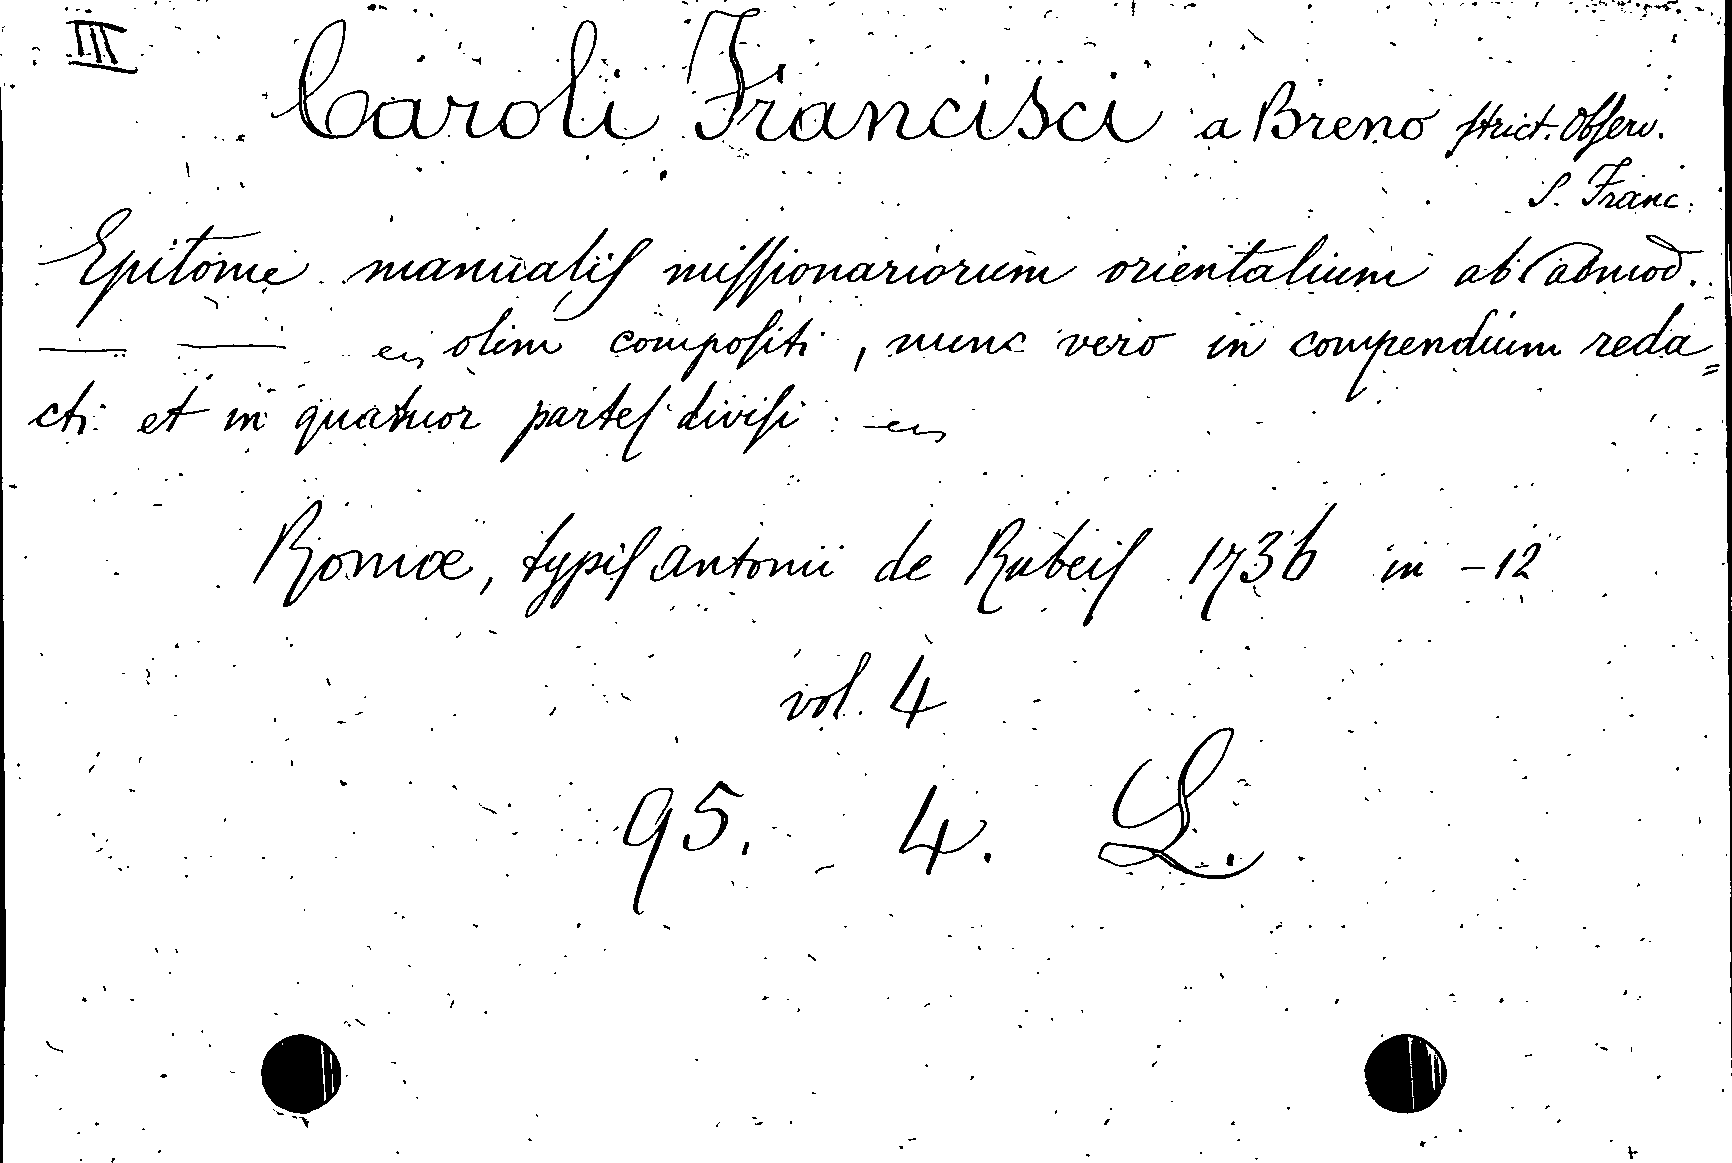 III
Caroli Francisci a Breno strict. Observ.
S. Franc.
Epitome manualis missionariorum orientalium ab admod.
—— —— olim compositi, nunc vero in compendium reda=
cti et in quatuor partes divisi
Romæ, typis Antonii de Rubeis 1736 in-12
vol. 4
95. 4. L.